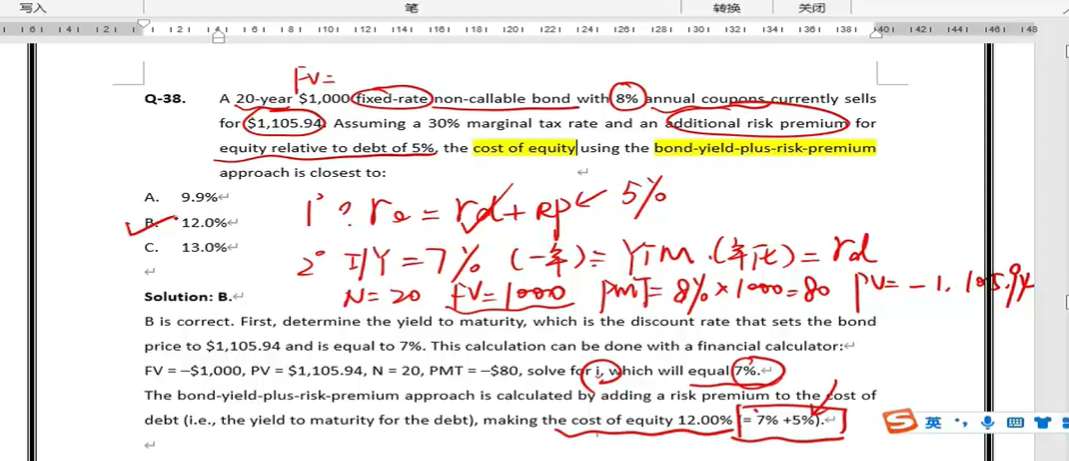 写入 笔 转换 关闭
FV=
Q-38. A 20-year $1,000 fixed-rate non-callable bond with 8% annual coupons currently sells
for $1,105.94. Assuming a 30% marginal tax rate and an additional risk premium for
equity relative to debt of 5%, the cost of equity using the bond-yield-plus-risk-premium
approach is closest to:
A. 9.9%
B. 12.0%
C. 13.0%
1° ? re = rd + RP ← 5%
2° I/Y = 7% (一年) = YTM (年化) = rd
N = 20 FV = 1000 PMT = 8% × 1000 = 80 PV = -1,105.94
Solution: B.
B is correct. First, determine the yield to maturity, which is the discount rate that sets the bond
price to $1,105.94 and is equal to 7%. This calculation can be done with a financial calculator:
FV = −$1,000, PV = $1,105.94, N = 20, PMT = −$80, solve for i, which will equal 7%.
The bond-yield-plus-risk-premium approach is calculated by adding a risk premium to the cost of
debt (i.e., the yield to maturity for the debt), making the cost of equity 12.00% (= 7% +5%).
英